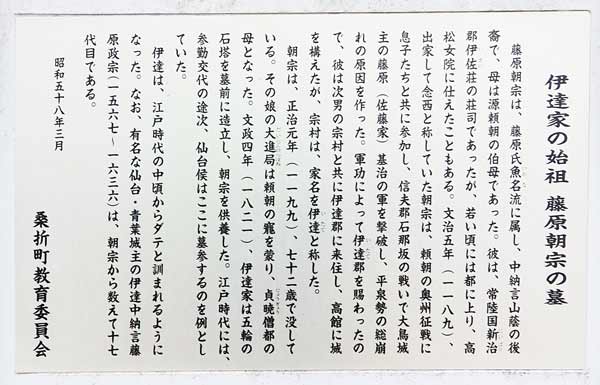 伊達家の始祖 藤原朝宗の墓
藤原朝宗は、藤原氏魚名流に属し、中納言山蔭の後
裔で、母は源頼朝の伯母であった。彼は、常陸国新治
郡伊佐荘の荘司であったが、若い頃には都に上り、高
松女院に仕えたこともある。文治五年(一一八九)、
出家して念西と称していた朝宗は、頼朝の奥州征戦に
息子たちと共に参加し、信夫郡石那坂の戦いで大鳥城
主の藤原(佐藤家)基治の軍を撃破し、平泉勢の総崩
れの原因を作った。軍功によって伊達郡を賜わったの
で、彼は次男の宗村と共に伊達郡に来住し、高館に城
を構えたが、宗村は、家名を伊達と称した。
朝宗は、正治元年(一一九九)、七十二歳で没して
いる。その娘の大進局は頼朝の寵を蒙り、貞暁僧都の
母となった。文政四年(一八二一)、伊達家は五輪の
石塔を墓前に造立し、朝宗を供養した。江戸時代には、
参勤交代の途次、仙台侯はここに墓参するのを例とし
ていた。
伊達は、江戸時代の中頃からダテと訓まれるように
なった。なお、有名な仙台・青葉城主の伊達中納言藤
原政宗(一五六七〜一六三六)は、朝宗から数えて十七
代目である。
昭和五十八年三月
桑折町教育委員会